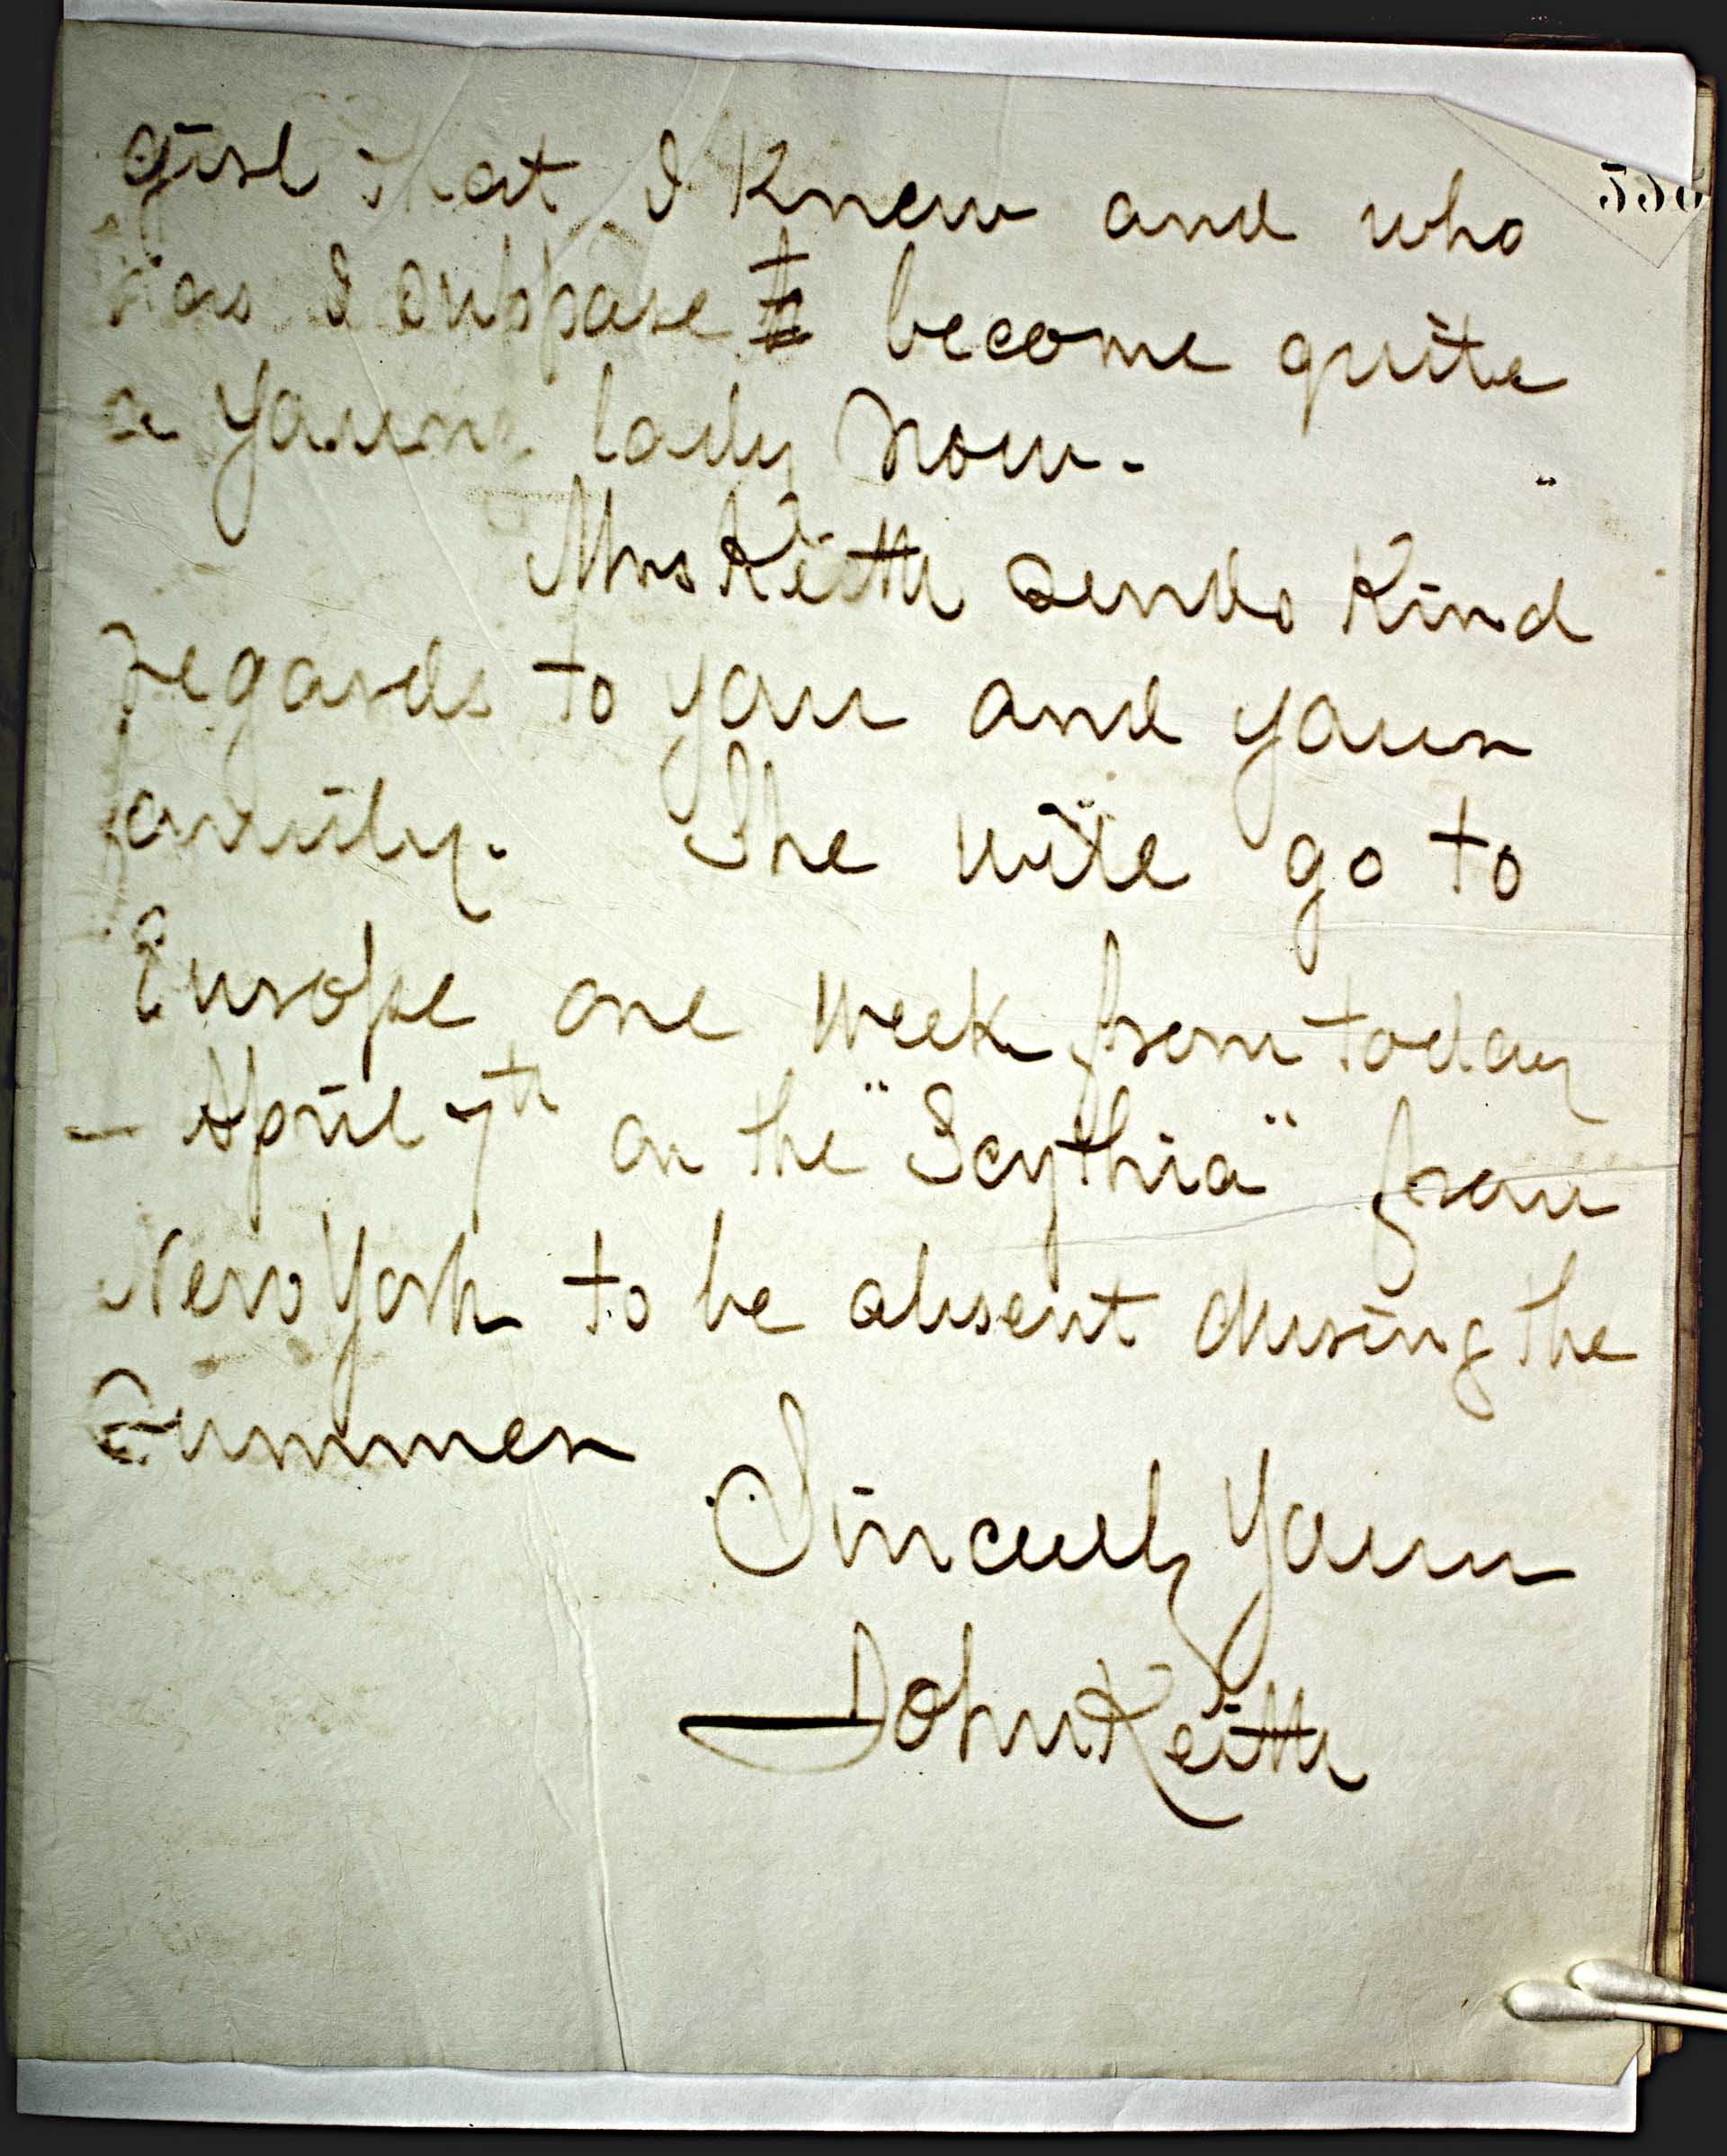 girl that I knew and who
has I suppose to become quite
a young lady now.
Mrs Keith sends kind
regards to you and your
family. She will go to
Europe one week from today
— April 7th on the "Scythia" from
New York to be absent during the
Summer
Sincerely Yours
John Keith